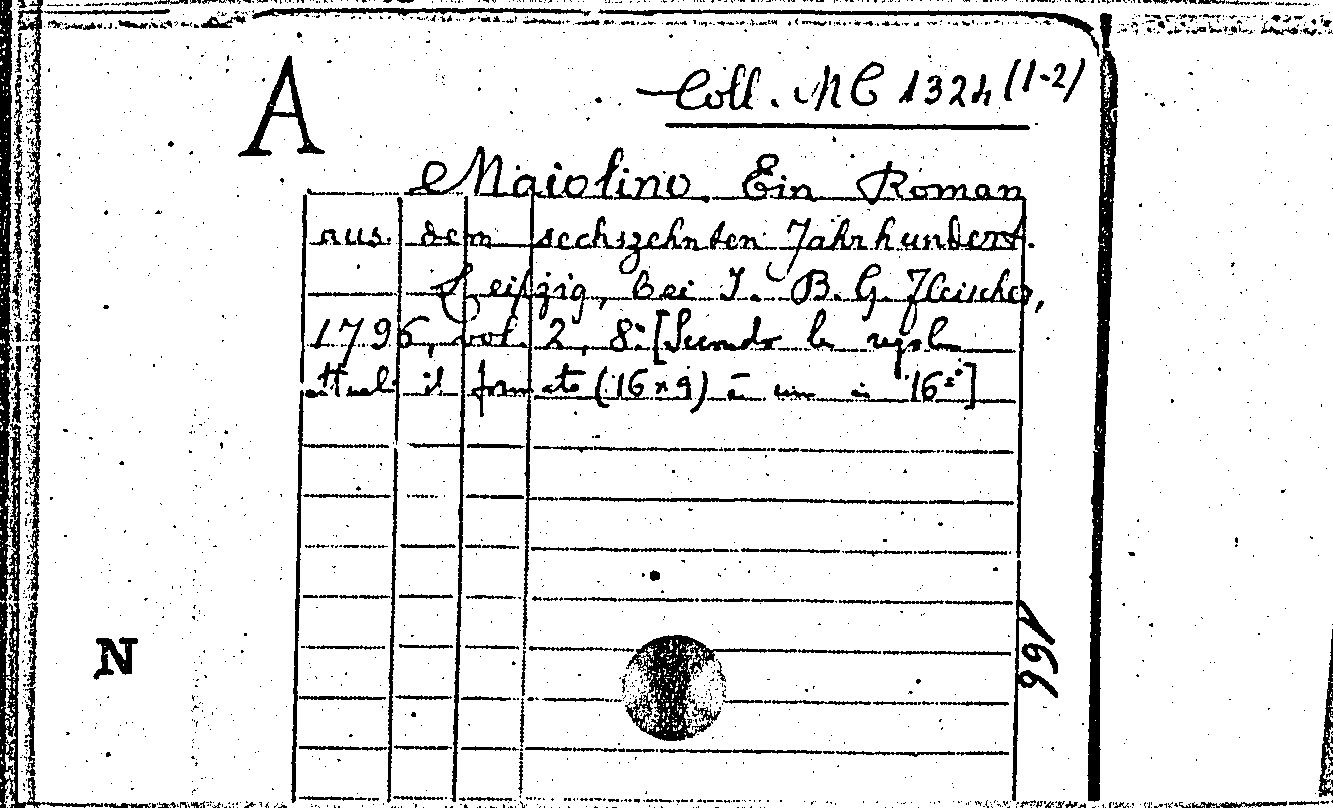 A
Coll. MC 132h (1-2)
Maiolino. Ein Roman
aus dem sechszehnten Jahrhundert.
Leipzig, bei J. B. G. Fleischer,
1796, vol. 2, 8° [Secondo le regole
attuali il formato (16x9) è un in 16°]
N
166